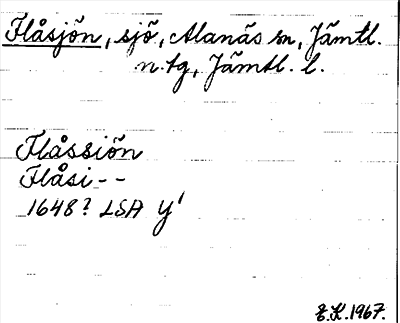 Flåsjön, sjö, Alanäs sn, Jämtl.
n. tg, Jämtl. l.
Flåssiön
Flåsi--
1648? LSA Y'
E.K. 1967.